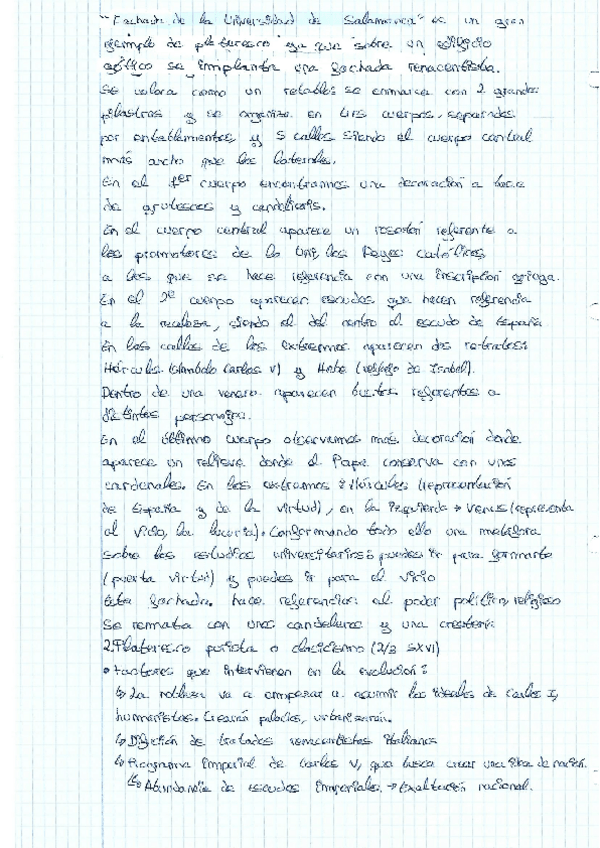 "Fachada de la Universidad de Salamanca" es un gran
ejemplo de plateresco ya que sobre un edificio
gótico se implanta una fachada renacentista.
Se valora como un retablo, se enmarca con 2 grandes
pilastras y se organiza en tres cuerpos, separados
por entablamentos y 5 calles siendo el cuerpo central
más ancho que los laterales.
En el 1er cuerpo encontramos una decoración a base
de grutescos y candelieris.
En el cuerpo central aparece un rosetón referente a
los promotores de la Uni, los Reyes Católicos
a los que se hace referencia con una inscripción griega.
En el 2º cuerpo aparecen escudos que hacen referencia
a la realeza, siendo el del centro el escudo de España
En las calles de los extremos aparecen dos retratos:
Hércules (símbolo Carlos V) y Hebe (reflejo de Isabel).
Dentro de una venera aparecen bustos referentes a
distintos personajes.
En el último cuerpo observamos más decoración donde
aparece un relieve donde el Papa conversa con unos
cardenales. En los extremos: Hércules (representación
de España y de la virtud), en la izquierda → Venus (representa
al vicio, la lujuria). Conformando todo ello una metáfora
sobre los estudios universitarios: puedes ir para formarte
(puerta virtud) y puedes ir para el vicio
Esta fachada hace referencias: al poder político, religioso
Se remata con unos candelabros y una crestería
2. Plateresco purista o clasicismo (2/3 SXVI)
• Factores que intervienen en la evolución:
↳ La nobleza va a empezar a asumir los ideales de Carlos I,
humanistas. Crearán palacios, urbanizarán.
↳ Difusión de tratados renacentistas italianos
↳ Programa Imperial de Carlos V, que busca crear una idea de nación.
↳ Abundancia de escudos imperiales → Exaltación nacional.